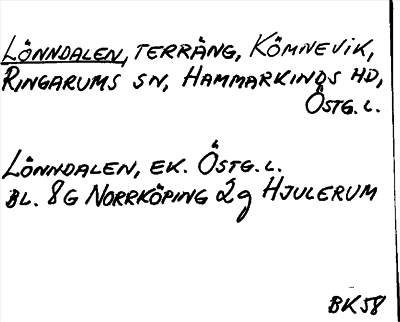 Lönndalen, terräng, Kömnevik,
Ringarums sn, Hammarkinds hd,
Östg. l.
Lönndalen, ek. Östg. l.
bl. 8G Norrköping 2g Hjulerum
BK58